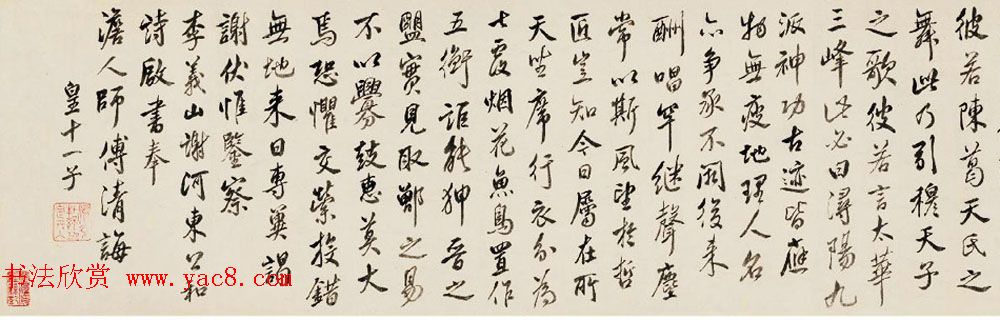 彼若陳葛天氏之
舞此乃引穆天子
之歌彼若言太華
三峰此必曰潯陽九
派神功古迹皆應
物無疲地理人名
亦爭承不闕後来
酬唱罕繼聲塵
常以斯風望於哲
匠豈知今日屬在所
天坐席行衣分為
七覆烟花魚鳥置作
五衡詎能狎晉之
盟實見取鄫之易
不以釁鼓惠莫大
焉恐懼交縈投錯
無地来日專冀謁
謝伏惟鑒察
李義山謝河東公和
詩啟書奉
澹人師傅清誨
皇十一子
书法欣赏 www.yac8.com